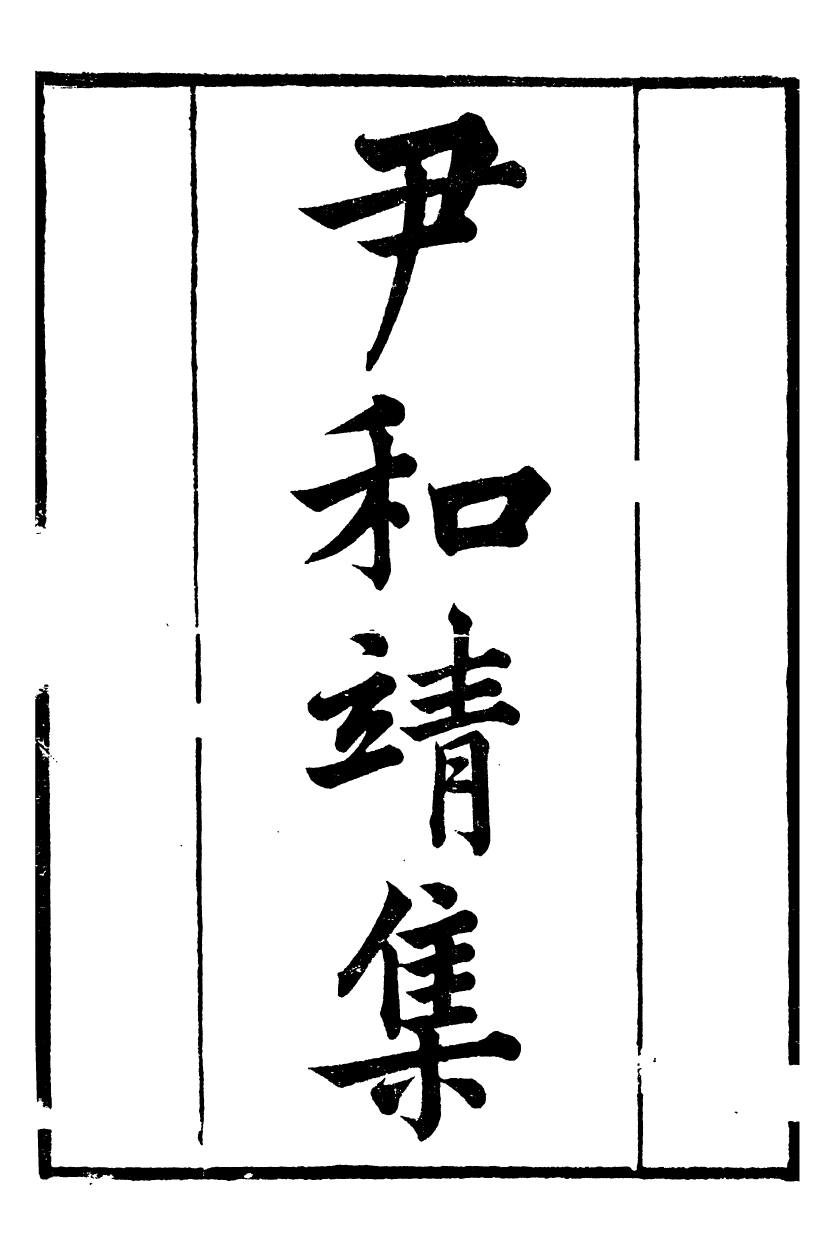 尹和靖集